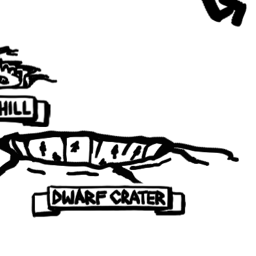 HILL
DWARF CRATER